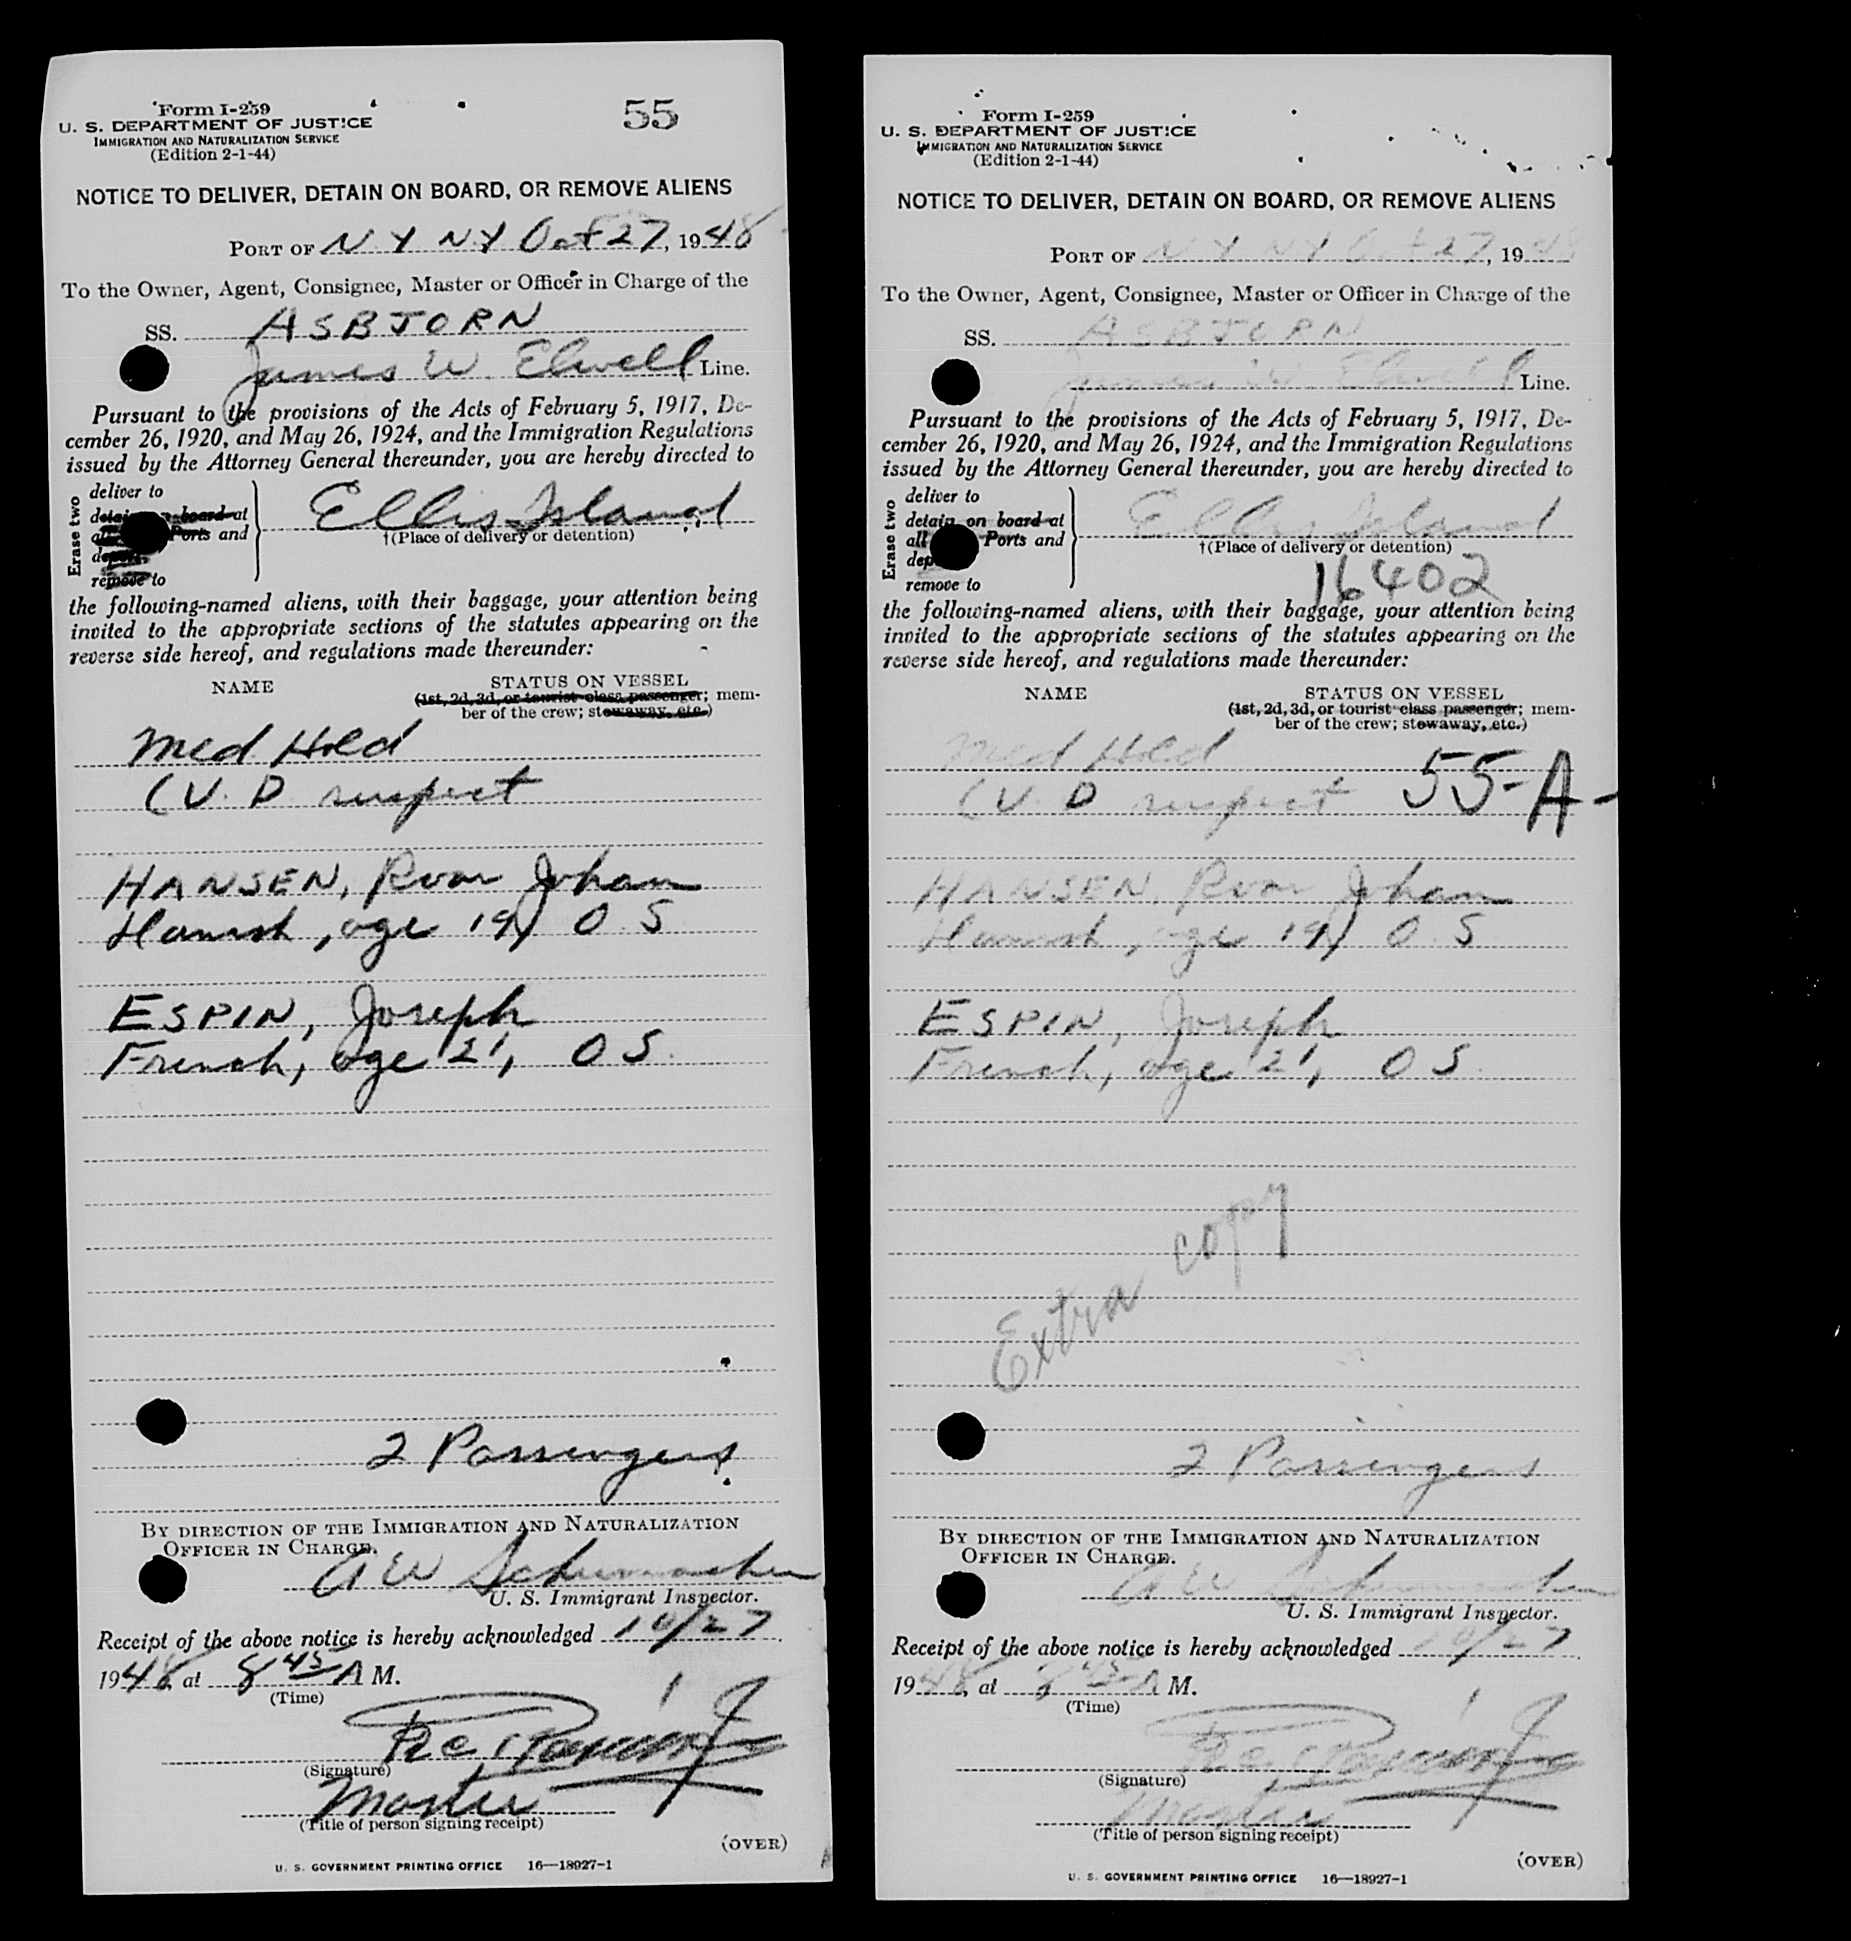 Form I-259
55
U. S. DEPARTMENT OF JUSTICE
IMMIGRATION AND NATURALIZATION SERVICE
(Edition 2-1-44)
NOTICE TO DELIVER, DETAIN ON BOARD, OR REMOVE ALIENS
PORT OF N Y N.Y Oct 27, 1948
To the Owner, Agent, Consignee, Master or Officer in Charge of the
SS. ASBJORN
James W. Elwell Line.
Pursuant to the provisions of the Acts of February 5, 1917, De-
cember 26, 1920, and May 26, 1924, and the Immigration Regulations
issued by the Attorney General thereunder, you are hereby directed to
Erase two
deliver to
detain on board at
all Ports and
remove to
Ellis Island
†(Place of delivery or detention)
the following-named aliens, with their baggage, your attention being
invited to the appropriate sections of the statutes appearing on the
reverse side hereof, and regulations made thereunder:
NAME STATUS ON VESSEL
(1st, 2d, 3d, or tourist class passenger; mem-
ber of the crew; stowaway, etc.)
Med Hold
(V. D suspect
HANSEN, Johan
age 19) O.S
ESPIN, Joseph
French, age 21, O S.
2 Passengers
BY DIRECTION OF THE IMMIGRATION AND NATURALIZATION
OFFICER IN CHARGE.
A W Schumacher
U. S. Immigrant Inspector.
Receipt of the above notice is hereby acknowledged 10/27
1948, at 8 45 A M.
(Time)
(Signature)
Master
(Title of person signing receipt)
(OVER)
U. S. GOVERNMENT PRINTING OFFICE 16—18927-1
Form I-259
U. S. DEPARTMENT OF JUSTICE
IMMIGRATION AND NATURALIZATION SERVICE
(Edition 2-1-44)
NOTICE TO DELIVER, DETAIN ON BOARD, OR REMOVE ALIENS
PORT OF N Y N Y Oct 27, 1948
To the Owner, Agent, Consignee, Master or Officer in Charge of the
SS. ASBJORN
James W. Elwell Line.
Pursuant to the provisions of the Acts of February 5, 1917, De-
cember 26, 1920, and May 26, 1924, and the Immigration Regulations
issued by the Attorney General thereunder, you are hereby directed to
Erase two
deliver to
detain on board at
all Ports and
remove to
Ellis Island
†(Place of delivery or detention)
16402
the following-named aliens, with their baggage, your attention being
invited to the appropriate sections of the statutes appearing on the
reverse side hereof, and regulations made thereunder:
NAME STATUS ON VESSEL
(1st, 2d, 3d, or tourist class passenger; mem-
ber of the crew; stowaway, etc.)
Med Hold
(V. D suspect 55-A-
HANSEN, Johan
age 19) O.S
ESPIN, Joseph
French, age 21, O S.
Extra copy
2 Passengers
BY DIRECTION OF THE IMMIGRATION AND NATURALIZATION
OFFICER IN CHARGE.
A W Schumacher
U. S. Immigrant Inspector.
Receipt of the above notice is hereby acknowledged 10/27
1948, at 8 45 A M.
(Time)
(Signature)
Master
(Title of person signing receipt)
(OVER)
U. S. GOVERNMENT PRINTING OFFICE 16—18927-1